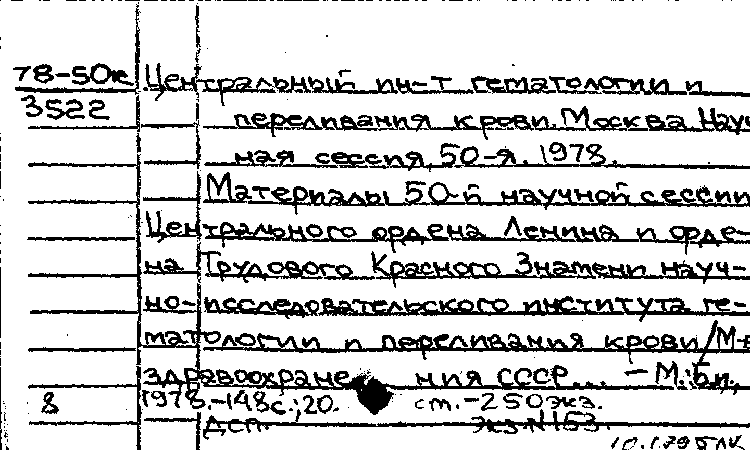 78-50к Центральный ин-т гематологии и
3522 переливания крови. Москва. Науч
ная сессия, 50-я. 1978.
Материалы 50-й научной сессии
Центрального ордена Ленина и орде-
на Трудового Красного Знамени науч-
но-исследовательского института ге-
матологии и переливания крови/М-
здравоохране ния СССР... - М.: б.и.,
8 1978.-148с.; 20. см.-250экз.
Дсп. Экз.N163.